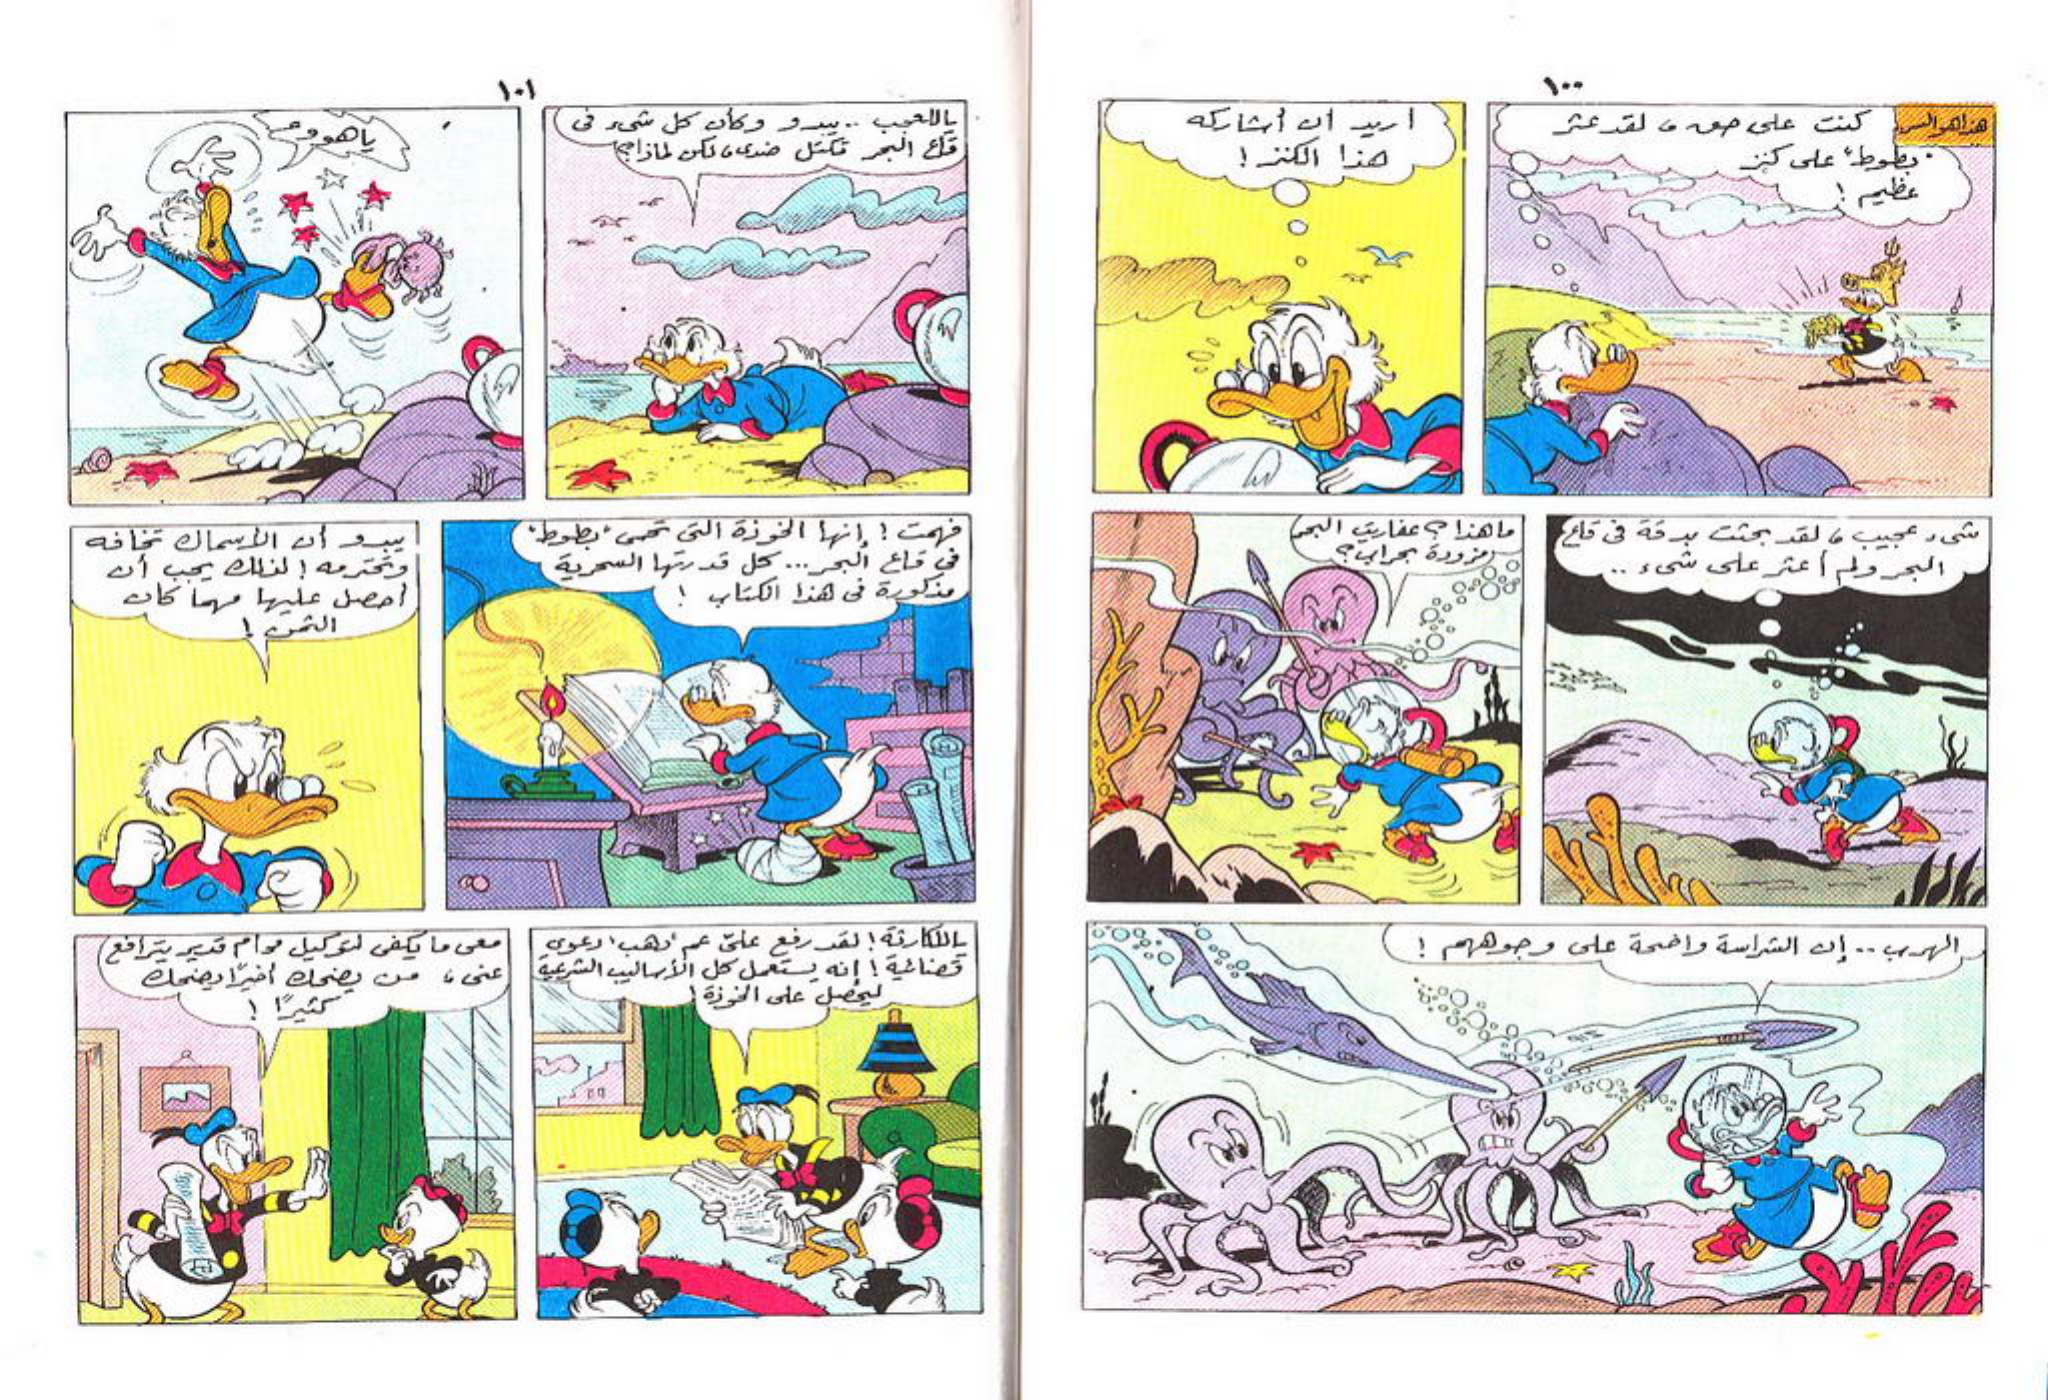 ١٠٠
هذا هو السر
كنت على حق ، لقد عثر
"بطوط" على كنز
عظيم !
أريد أن أشاركه
هذا الكنز !
شىء عجيب ، لقد بحثت بدقة فى قاع
البحر ولم أعثر على شىء ..
ما هذا ؟ عفاريت البحر
مزودة بحراب ؟
الهرب .. إن الشراسة واضحة على وجوههم !
١٠١
ياللعجب .. يبدو وكأن كل شىء فى
قاع البحر تكتل ضدى ، لكن لماذا ؟
ياهووو
فهمت ! إنها الخوذة التى تحمى "بطوط"
فى قاع البحر ... كل قدرتها السحرية
مذكورة فى هذا الكتاب !
يبدو أن الأسماك تخافه
وتحترمه ! لذلك يجب أن
أحصل عليها مهما كان
الثمن !
ياللكارثة ! لقد رفع علىّ عم "دهب" دعوى
قضائية ! إنه يستعمل كل الأساليب الشرعية
ليحصل على الخوذة !
معى ما يكفى لتوكيل محام قدير يترافع
عنى ، من يضحك أخيرًا يضحك
كثيرًا !